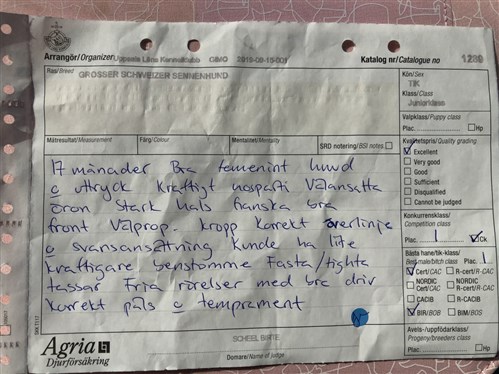 Arrangör/Organizer Uppsala Läns Kennelklubb CIMO 2015-08-15-001 Katalog nr/Catalogue no 1280
Ras/Breed GROSSER SCHWEIZER SENNENHUND
Kön/Sex
TIK
Klass/Class
Juniorklass
Valpklass/Puppy class
Plac. Hp
Mätresultat/Measurement Färg/Colour Mentalitet/Mentality SRD notering/BSI notes
Kvalitetspris/Quality grading
Excellent
Very good
Good
Sufficient
Disqualified
Cannot be judged
17 månader Bra femenint huvud
o uttryck kraftigt nosparti Välansatta
öron Stark hals ganska bra
front Välprop. kropp korrekt överlinje
o svansansättning Kunde ha lite
kraftigare benstomme Fasta/tighta
tassar Fria rörelser med bra driv
korrekt päls o temprament
Konkurrensklass/
Competition class
Plac. 1 CK
Bästa hane/tik-klass/
Best male/bitch class Plac. 1
Cert/CAC R-cert/R-CAC
NORDIC Cert/CAC NORDIC R-cert/R-CAC
CACIB R-CACIB
BIR/BOB BIM/BOS
Avels-/uppfödarklass/
Progeny/breeders class
Plac. Hp
Agria
Djurförsäkring
SCHEEL BIRTE
Domare/Name of Judge